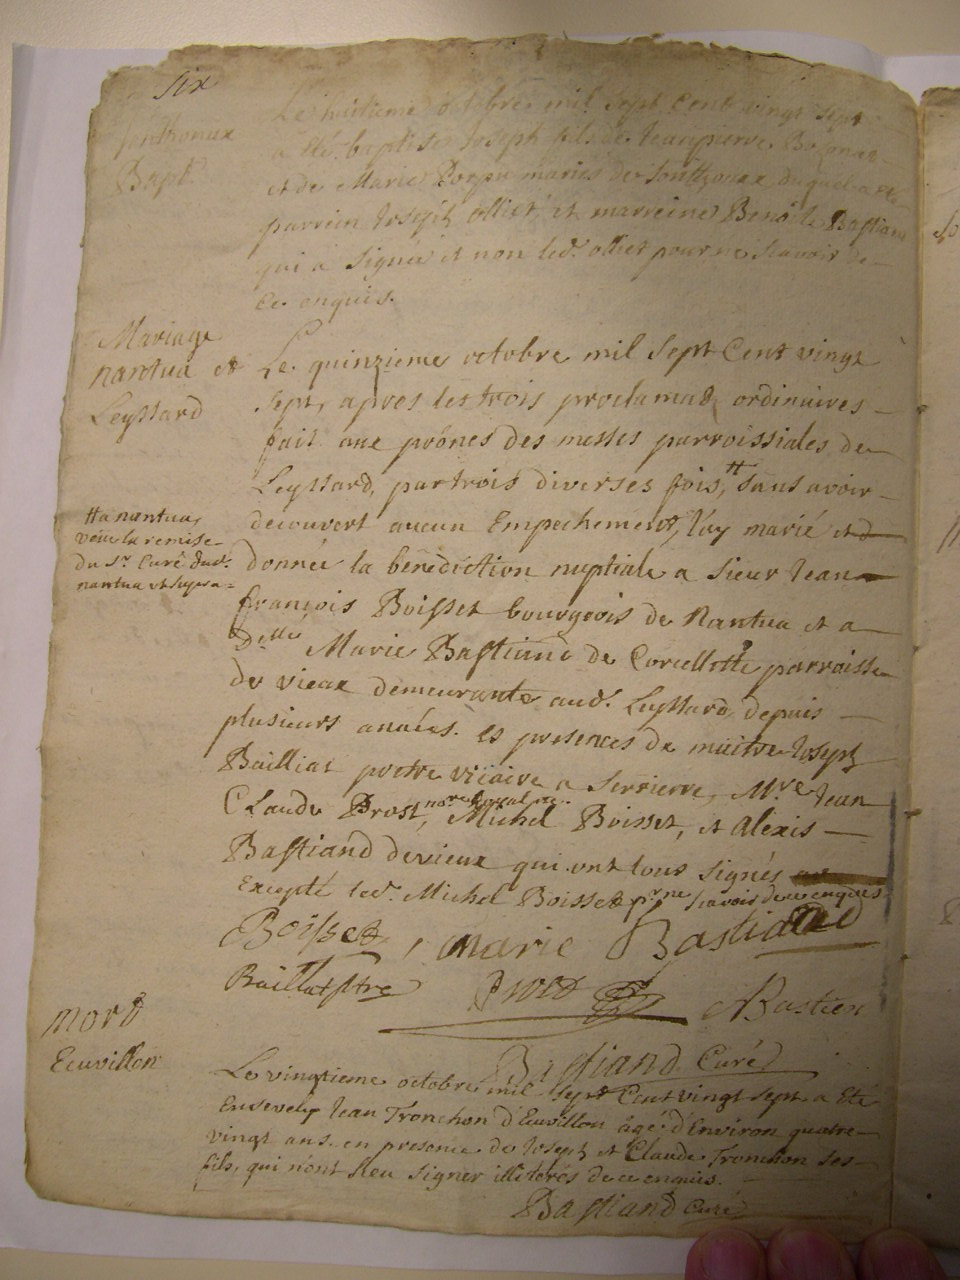 Six
Le huitieme octobre mil sept Cent vingt sept
a êté baptisé Joseph fils de Jeanpierre
et de Marie mariés de duquel a été
parrein Joseph olliet, et marreine Benoite Bastiand
qui a signée et non led. olliet pour ne scavoir de
ce enquis.
Bapt
Mariage
nantua et
Leyssard
Le quinzieme octobre mil sept Cent vingt
sept, apres les trois proclamaõ ordinaires
fait aux prônes des messes parroissiales de
Leyssard, par trois diverses fois, # sans avoir
decouvert aucun Empechement, j'ay marié et
donnée la benediction nuptiale a Sieur Jean
françois Boisset bourgeois de Nantua et a
Dlle Marie Bastiand de Corcellette parroisse
de vieux demeurante aud. Leyssard depuis
plusieurs années. és presences de maitre Joseph
Bailliat pretre viccaire a Serrierre, Mre Jean
Claude Prost, nore Royal, Michel Boisset, et Alexis
Bastiand de vieux qui ont tous signés
Excepté led. Michel Boisset pr ne scavoir de ce enquis
# a nantua,
veüe la remise
du Sr Curé dud.
nantua et supra
Boisset, marie Bastiand
Baillat ptre Prost A Bastien
Bastiand Curé
mort
Ecuvillon
Le vingtieme octobre mil sept Cent vingt sept a Eté
Ensevely Jean Tronchon d'Ecuvillon âgé d'Environ quatre
vingt ans. en presence de Joseph et Claude Tronchon ses
fils, qui n'ont sceu signer illiterés de ce enquis.
Bastiand Curé